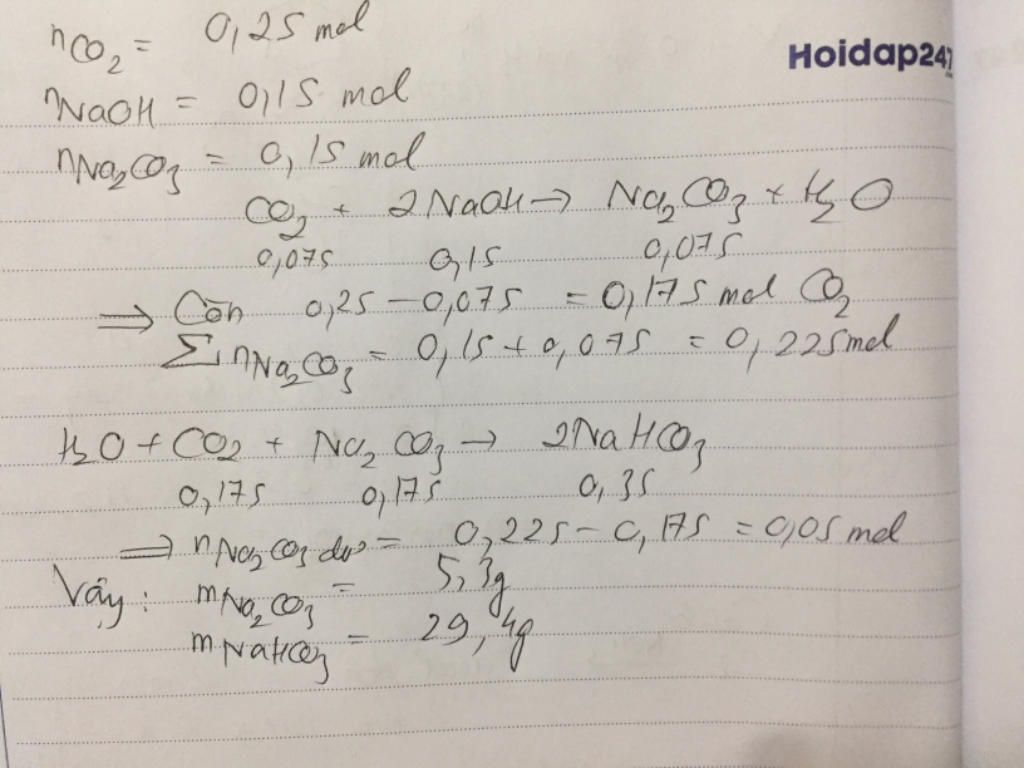 nCO₂ = 0,25 mol
Hoidap247
nNaOH = 0,15 mol
nNa₂CO₃ = 0,15 mol
CO₂ + 2NaOH → Na₂CO₃ + H₂O
0,075 0,15 0,075
⇒ Còn 0,25 - 0,075 = 0,175 mol CO₂
∑nNa₂CO₃ = 0,15 + 0,075 = 0,225 mol
H₂O + CO₂ + Na₂CO₃ → 2NaHCO₃
0,175 0,175 0,35
⇒ nNa₂CO₃ dư = 0,225 - 0,175 = 0,05 mol
Vậy: mNa₂CO₃ = 5,3g
mNaHCO₃ = 29,4g